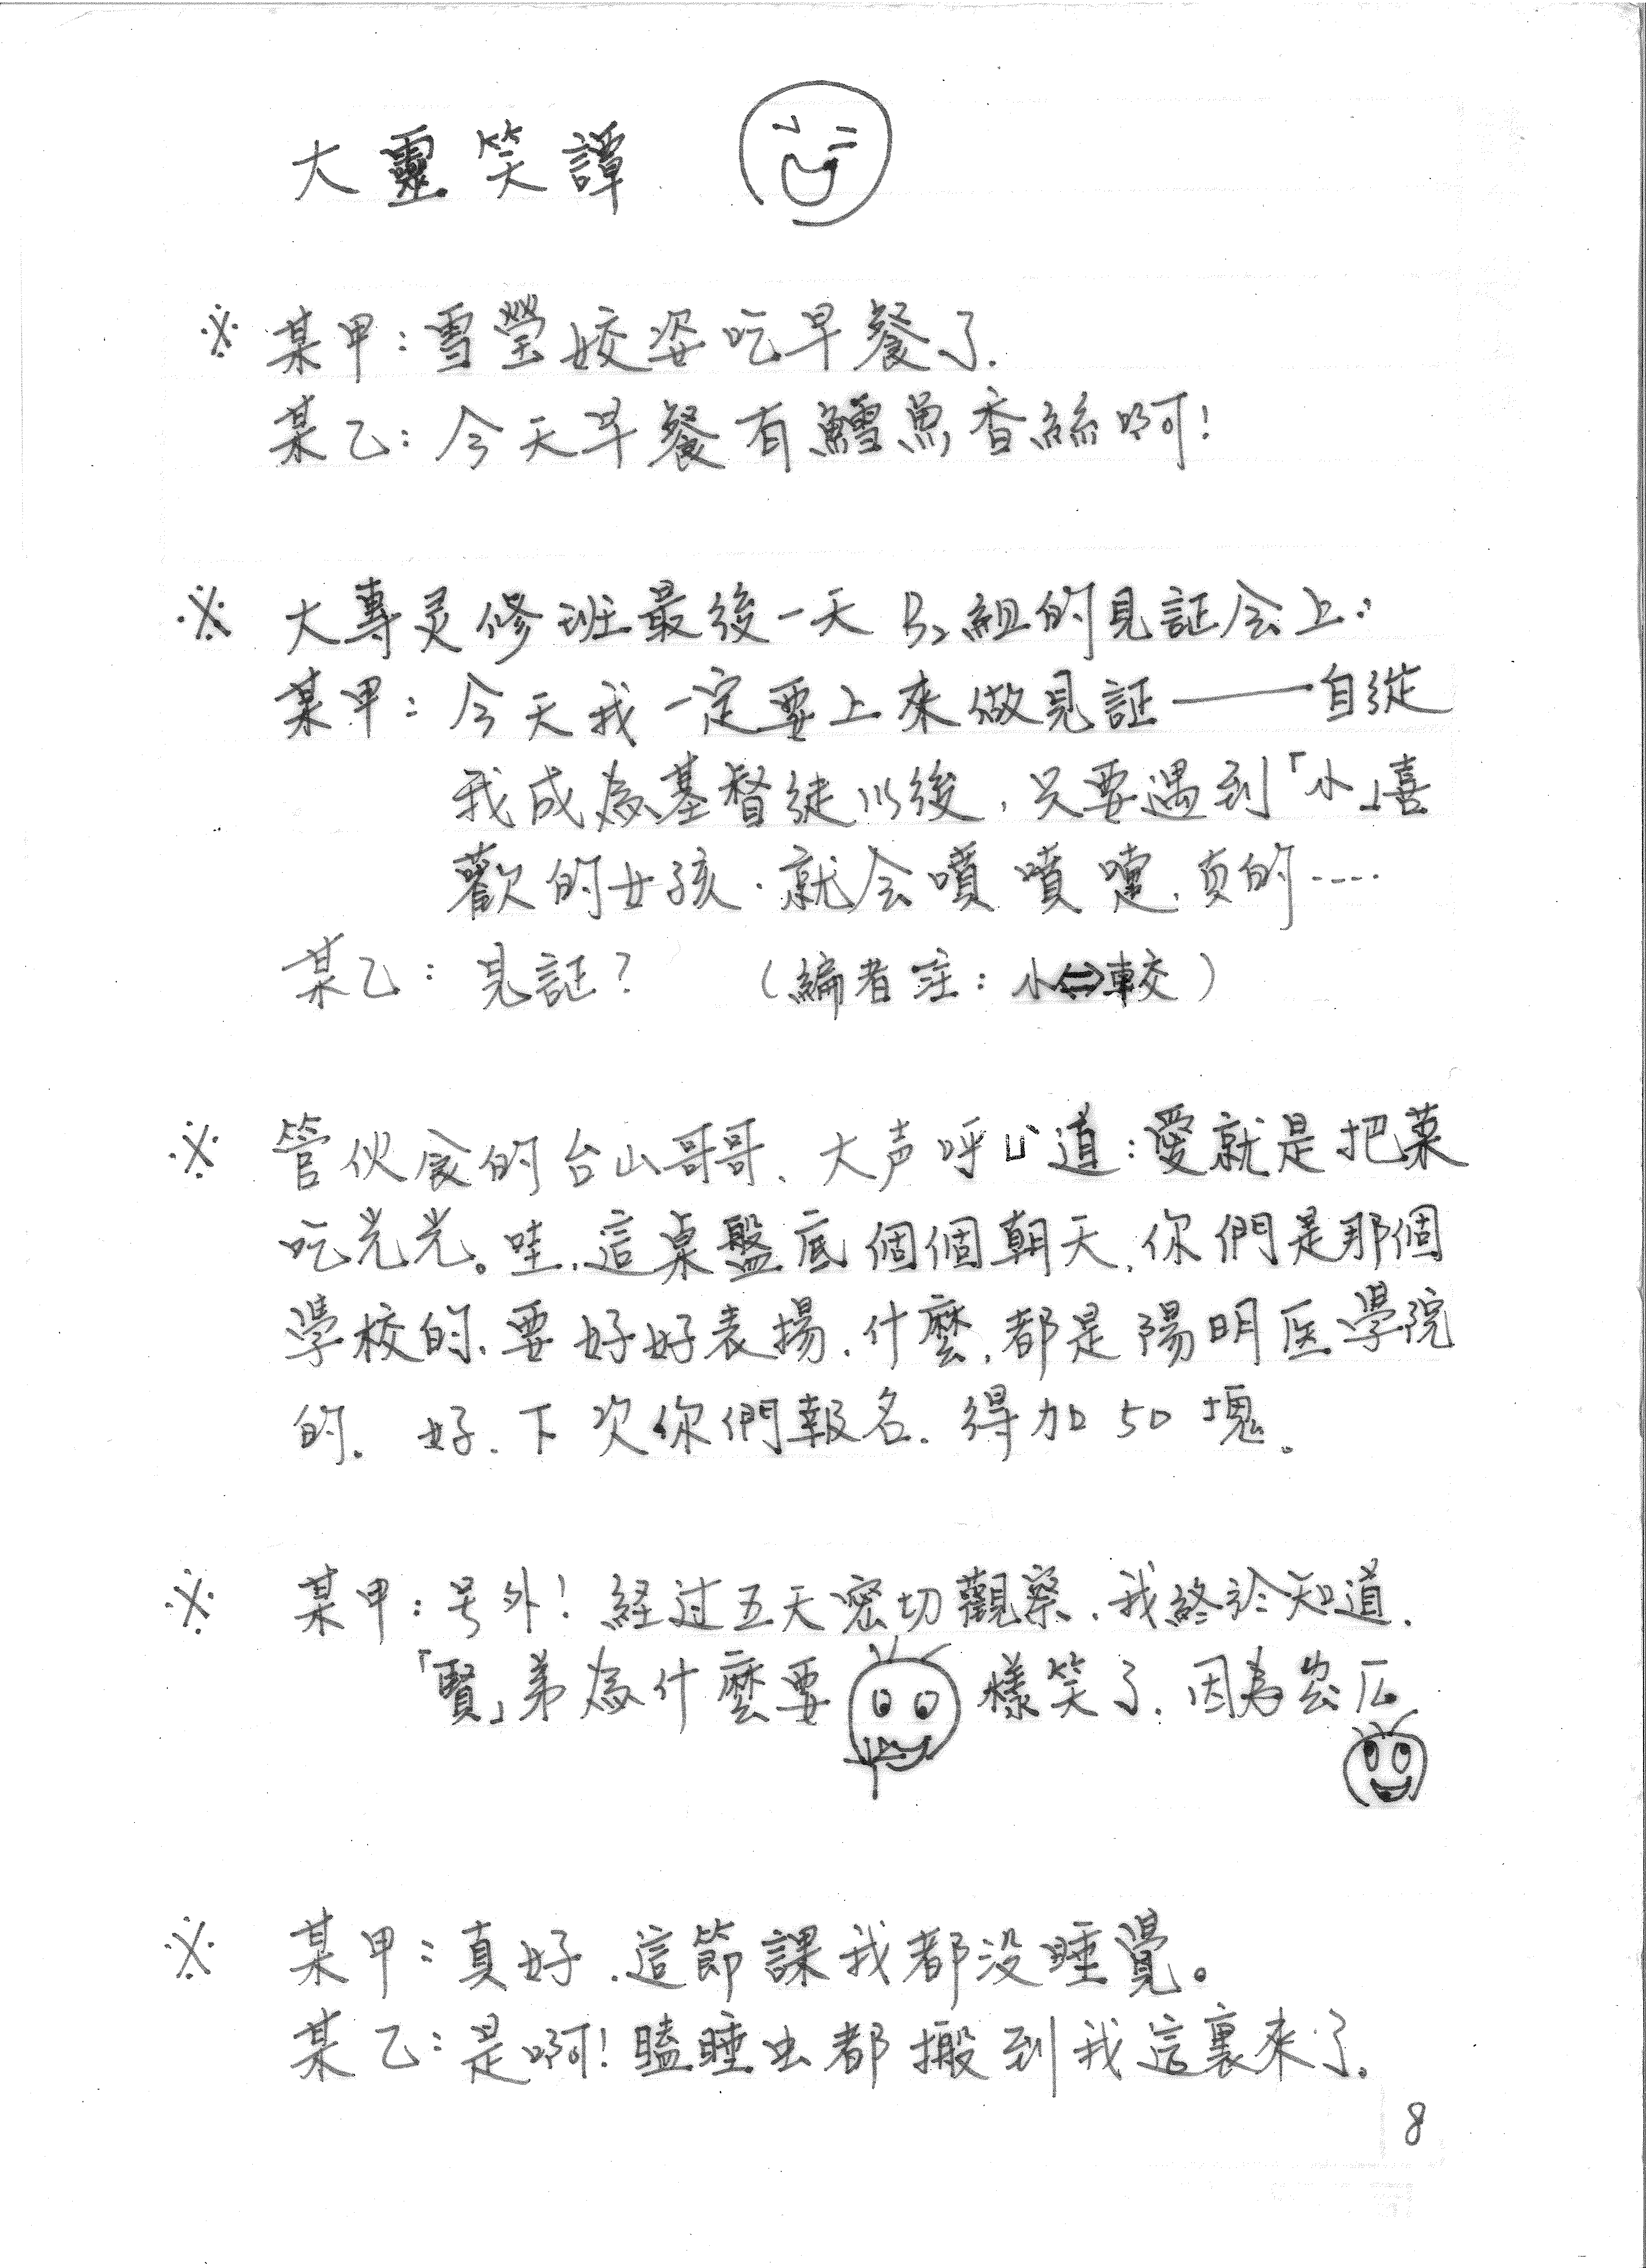 大靈笑譚
※ 某甲：雪瑩姣姿吃早餐了.
某乙：今天早餐有鱈魚香絲啊！
※ 大專灵修班最後一天 B₂組的見証会上：
某甲：今天我一定要上來做見証——自從
我成為基督徒以後，只要遇到「小」喜
歡的女孩．就会噴噴嚏，真的----
某乙：見証？ （編者註：小⇔較）
※ 管伙食的台山哥哥、大声呼 道：愛就是把菜
吃光光。哇，這桌盤底個個朝天，你們是那個
學校的、要好好表揚．什麼，都是陽明医學院
的．好．下次你們報名．得加50塊。
※ 某甲：号外！経过五天密切觀察．我終於知道．
「賢」弟為什麼要 樣笑了．因為
※ 某甲：真好．這節課我都没睡覺。
某乙：是啊！瞌睡虫都搬到我這裏來了.
8